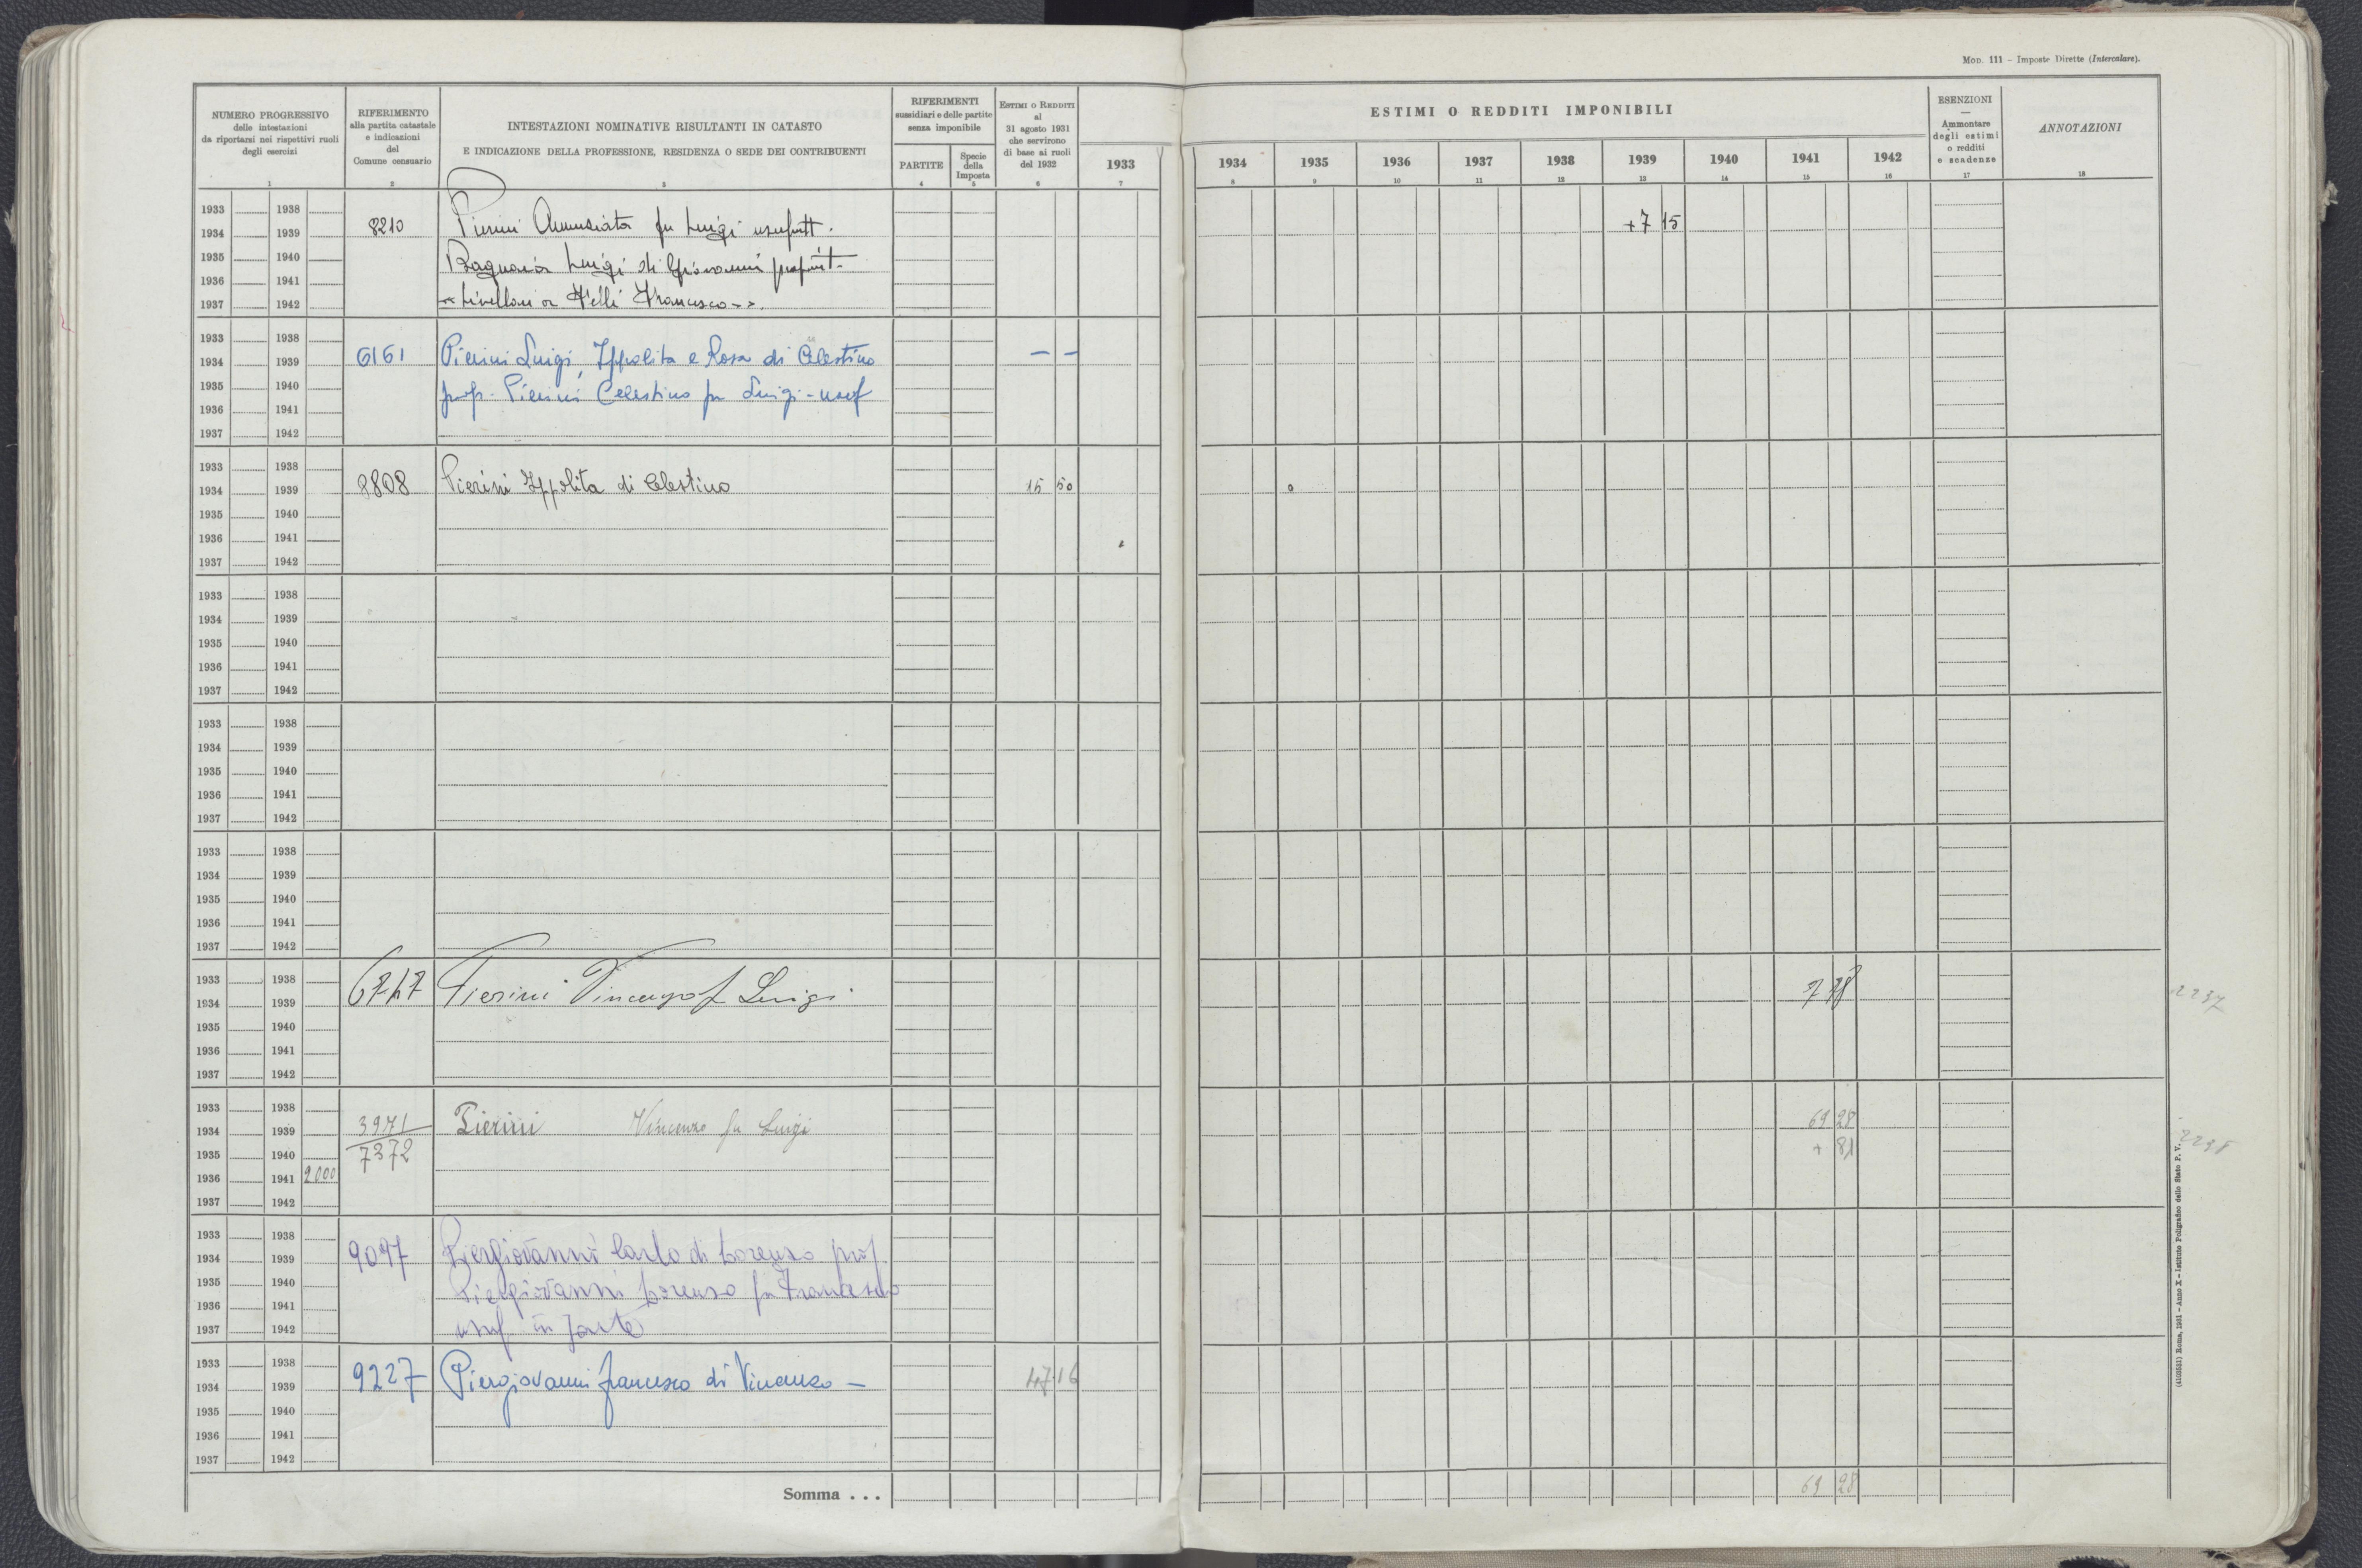 Mod. 111 - Imposte Dirette (Intercalare).
NUMERO PROGRESSIVO
delle intestazioni
da riportarsi nei rispettivi ruoli
degli esercizi
1
RIFERIMENTO
alla partita catastale
e indicazioni
del
Comune censuario
2
INTESTAZIONI NOMINATIVE RISULTANTI IN CATASTO
E INDICAZIONE DELLA PROFESSIONE, RESIDENZA O SEDE DEI CONTRIBUENTI
3
RIFERIMENTI
sussidiari e delle partite
senza imponibile
PARTITE
4
Specie
della
Imposta
5
ESTIMI O REDDITI
al
31 agosto 1931
che servirono
di base ai ruoli
del 1932
6
1933
7
ESTIMI O REDDITI IMPONIBILI
1934 1935 1936 1937 1938 1939 1940 1941 1942
8 9 10 11 12 13 14 15 16
ESENZIONI
—
Ammontare
degli estimi
o redditi
e scadenze
17
ANNOTAZIONI
18
1933 1938
1934 1939 8210 Pierini Annunziata fu Luigi usufrutt. +7 15
1935 1940 Luigi di Giovanni propriet-
1936 1941
1937 1942 Francesco
1933 1938
1934 1939 6161 Pierini Luigi, Ippolita e Rosa di Celestino — —
1935 1940 prop. Pierini Celestino fu Luigi - usuf
1936 1941
1937 1942
1933 1938
1934 1939 8808 Pierini Ippolita di Celestino 15 50 0
1935 1940
1936 1941
1937 1942
1933 1938
1934 1939
1935 1940
1936 1941
1937 1942
1933 1938
1934 1939
1935 1940
1936 1941
1937 1942
1933 1938
1934 1939
1935 1940
1936 1941
1937 1942
1933 1938
1934 1939 Pierini Vincenzo f Luigi 2237
1935 1940
1936 1941
1937 1942
1933 1938
1934 1939 3971 Pierini Vincenzo fu Luigi 69 28
1935 1940 7372 + 81 2238
1936 1941 2000
1937 1942
1933 1938
1934 1939 9097 Piergiovanni Carlo di Lorenzo prop.
1935 1940 Piergiovanni Lorenzo fu Francesco
1936 1941
1937 1942 usuf in parte
1933 1938
1934 1939 9227 Piergiovanni Francesco di Vincenzo — 47 16
1935 1940
1936 1941
1937 1942
Somma . . . 69 28
(4103531) Roma, 1931 - Anno X - Istituto Poligrafico dello Stato P. V.